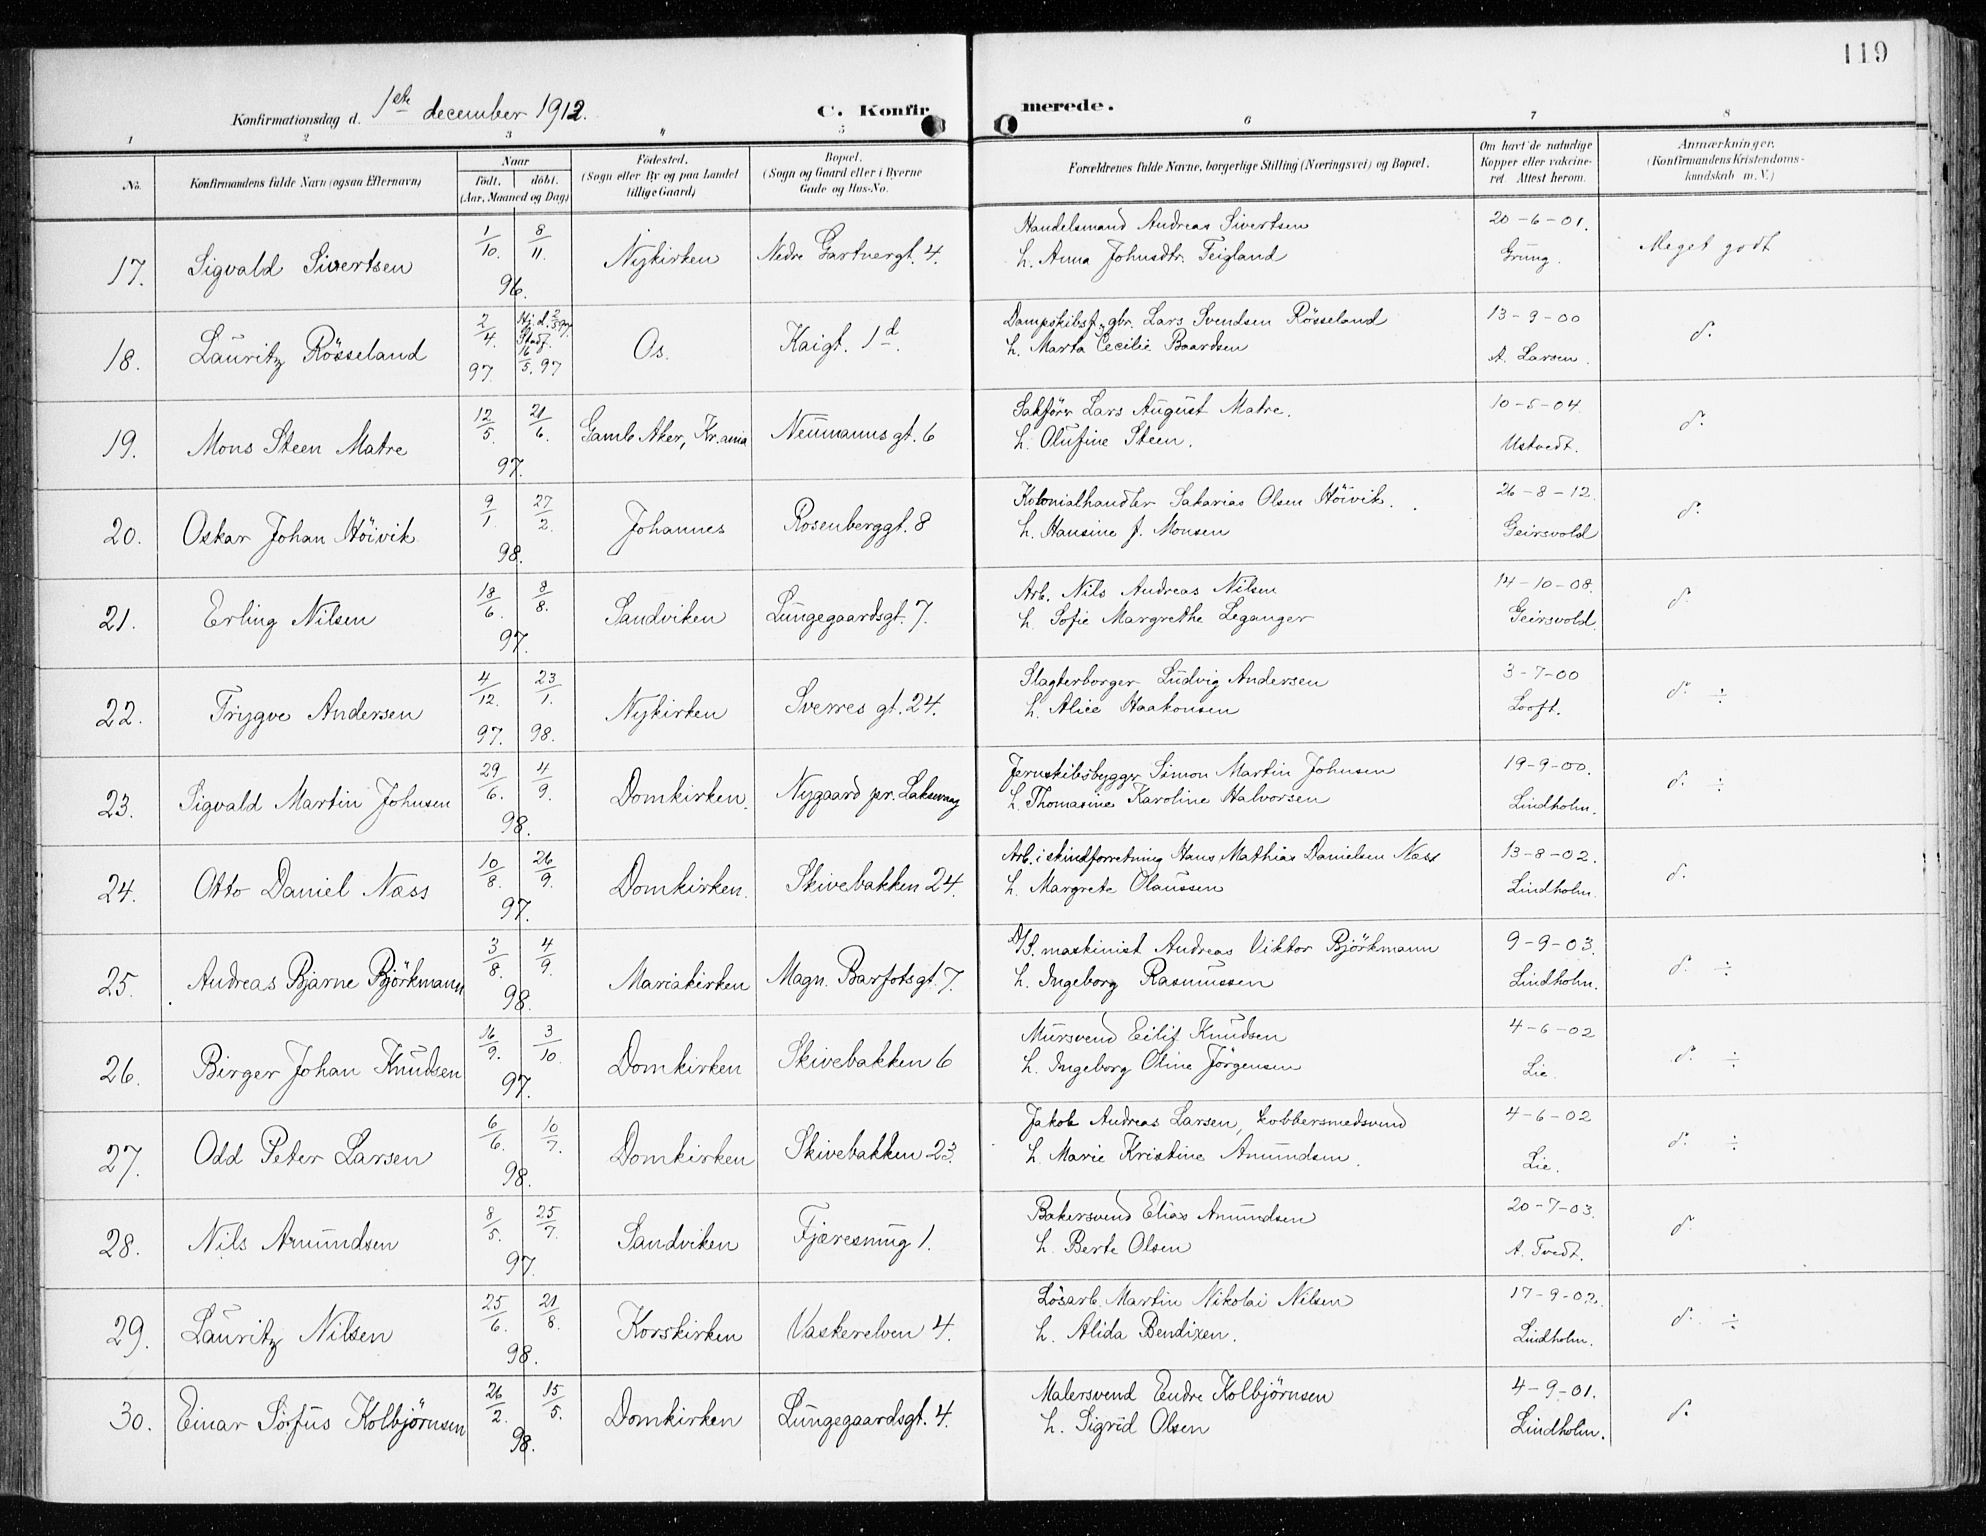 119
Konfirmationsdag d. 1ste december 1912.
C. Konfirmerede.
1 2 3 4 5 6 7 8
No. Konfirmandens fulde Navn (ogsaa Efternavn) Naar født, døbt. (Aar, Maaned og Dag) Fødested. (Sogn eller By og paa Landet tillige Gaard) Bopæl. (Sogn og Gaard eller i Byerne Gade og Hus-No. Forældrenes fulde Navne, borgerlige Stilling (Næringsvei) og Bopæl. Om havt de naturlige Kopper eller vakcineret. Attest herom. Anmærkninger. (Konfirmandens Kristendomskundskab m. V.)
17. Sigvald Sivertsen 1/10. 8/11. 96. Nykirken Nedre Gartnergt. 4. Handelsmand Andreas Sivertsen
h. Anna Johnsdtr. Teigland 20-6-01. Grung. Meget godt
18. Lauritz Rösseland 2/4. 97. Hj. d. 2/5 97 Stadf. 16/5. 97 Os. Kaigt. 1d. Dampskibsf. gbr. Lars Svendsen Rösseland
h. Marta Cecilie Baardsen 13-9-00 A. Larsen. d.
19. Mons Steen Matre 12/5. 21/6. 97. Gamle Aker, Kr.ania Neumanns gt. 6 Sakförer Lars August Matre.
h. Olufine Steen. 10-5-04. Ustvedt. d.
20. Oskar Johan Höivik 9/1. 27/2. 98. Johannes Rosenberggt. 8 Kolonialhandler Sakarias Olsen Höivik.
h. Hansine J. Monsen 26-8-12. Geirsvold d.
21. Erling Nilsen 18/6. 8/8. 97. Sandviken Lungegaardsgt. 7. Arb. Nils Andreas Nilsen
h. Sofie Margrethe Leganger 14-10-08. Geirsvold. d.
22. Trygve Andersen 4/12. 97. 23/1. 98. Nykirken Sverres gt. 24. Slagterborger Ludvig Andersen
h. Alice Haakonsen 3-7-00 Looft. d. ÷
23. Sigvald Martin Johnsen 29/6. 4/9. 98. Domkirken. Nygaard pr. Laksevaag Jernskibsbygger Simon Martin Johnsen
h. Thomasine Karoline Halvorsen 19-9-00. Lindholm. d. ÷
24. Otto Daniel Næss 10/8. 26/9. 97. Domkirken. Skivebakken 24. Arb. i skindforretning Hans Mathias Danielsen Næss
h. Margrete Olaussen 13-8-02. Lindholm. d.
25. Andreas Bjarne Björkmann 3/8. 4/9. 98. Mariakirken Magn. Barfotsgt. 7. D/S. maskinist Andreas Viktor Björkmann
h. Ingeborg Rasmussen 9-9-03. Lindholm. d. ÷
26. Birger Johan Knudsen 16/9. 3/10. 97. Domkirken Skivebakken 6 Mursvend Eilif Knudsen
h. Ingeborg Oline Jörgensen 4-6-02 Lie. d. ÷
27. Odd Peter Larsen 6/6. 10/7. 98. Domkirken Skivebakken 23. Jakob Andreas Larsen, kobbersmedsvend
h. Marie Kristine Amundsen. 4-6-02 Lie. d. ÷
28. Nils Amundsen 8/5. 25/7. 97. Sandviken Fjæresmug 1. Bakersvend Elias Amundsen
h. Berte Olsen 20-7-03. A. Tvedt. d.
29. Lauritz Nilsen 25/6. 21/8. 98. Korskirken Vaskerelven 4. Lösarb. Martin Nikolai Nilsen
h. Alida Bendixen. 17-9-02. Lindholm. d. ÷
30. Einar Sörfus Kolbjörnsen 26/2. 15/5. 98. Domkirken Lungegaardsgt. 4. Malersvend Endre Kolbjörnsen
h. Sigrid Olsen 4-9-01. Lindholm. d.